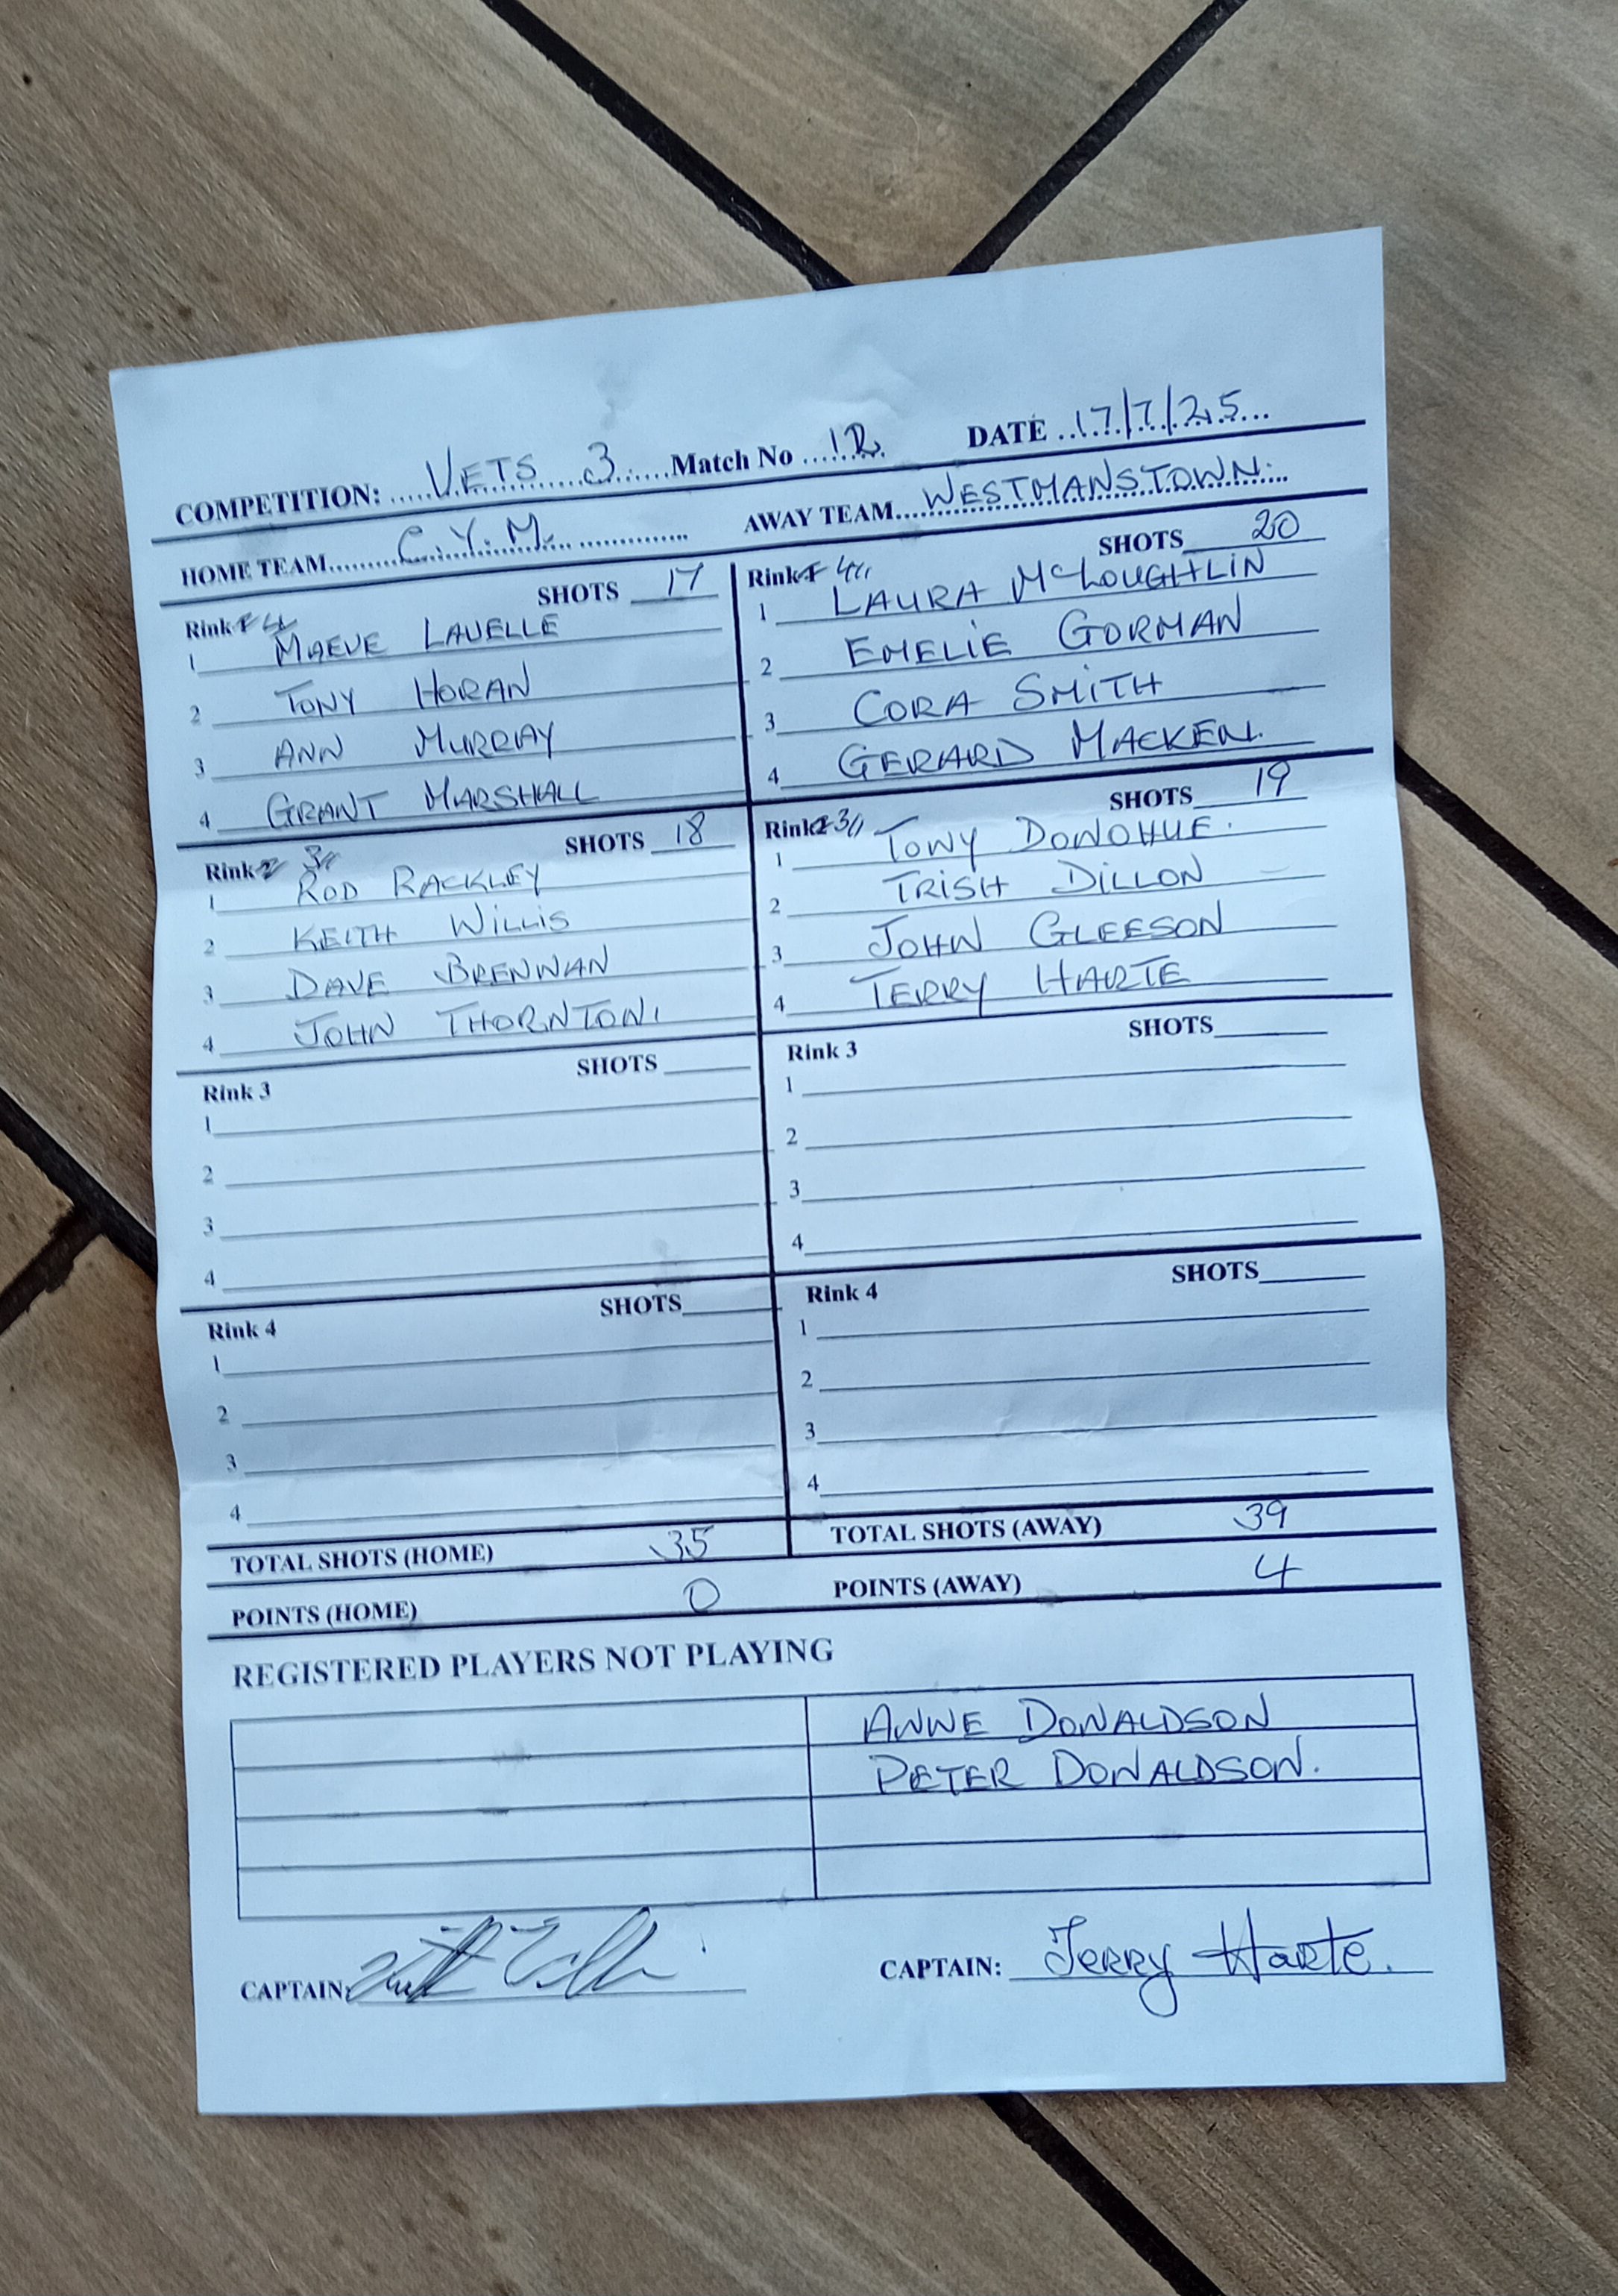 COMPETITION: VETS 3 Match No 12 DATE 17/7/25
HOME TEAM C.Y.M. AWAY TEAM WESTMANSTOWN.
SHOTS 17
Rink 4
1 MAEVE LAVELLE
2 TONY HORAN
3 ANN MURRAY
4 GRANT MARSHALL
SHOTS 20
Rink 4
1 LAURA McLOUGHLIN
2 EMELIE GORMAN
3 CORA SMITH
4 GERARD MACKEN.
SHOTS 18
Rink 3
1 ROD RACKLEY
2 KEITH WILLIS
3 DAVE BRENNAN
4 JOHN THORNTON
SHOTS 19
Rink 3
1 TONY DONOHUE.
2 TRISH DILLON
3 JOHN GLEESON
4 TERRY HARTE
SHOTS
Rink 3
1
2
3
4
SHOTS
Rink 3
1
2
3
4
SHOTS
Rink 4
1
2
3
4
SHOTS
Rink 4
1
2
3
4
TOTAL SHOTS (HOME) 35 TOTAL SHOTS (AWAY) 39
POINTS (HOME) 0 POINTS (AWAY) 4
REGISTERED PLAYERS NOT PLAYING
ANNE DONALDSON
PETER DONALDSON.
CAPTAIN: CAPTAIN: Terry Harte.